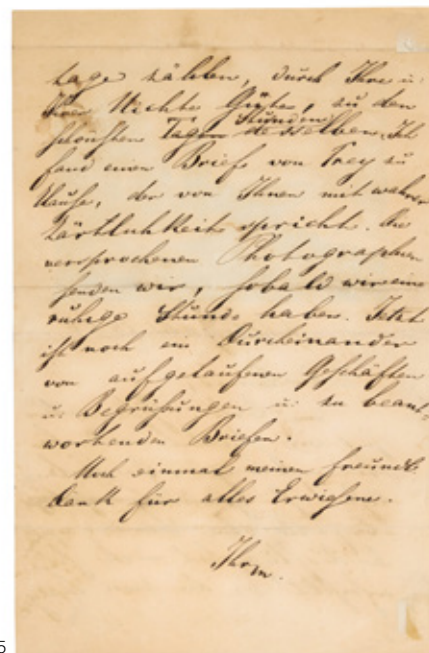 tage zählen, durch Ihre u:
Ihrer Nichte Güte, zu den
schönsten Tagen Stunden desselben. Ich
fand einen Brief von Frey zu
Hause, der von Ihnen mit wahrer
Zärtlichkeit spricht. Die
versprochenen Photographien
senden wir, sobald wir eine
ruhige Stunde haben. Jetzt
ist noch ein Durcheinander
von aufgelaufenen Geschäften
u: Begrüßungen u: zu beant-
wortenden Briefen.
Noch einmal meinen freundl.
Dank für alles Erwiesene.
Ihr
5